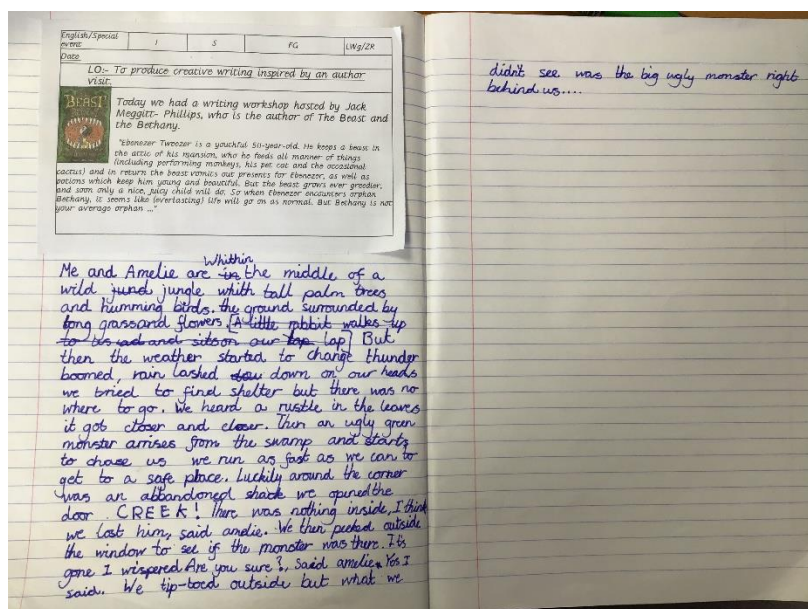 English/Special event 1 5 FG LWg/ZR
Date
LO:- To produce creative writing inspired by an author
visit.
BEAST
Today we had a writing workshop hosted by Jack
Meggitt- Phillips, who is the author of The Beast and
the Bethany.
"Ebenezer Tweezer is a youthful 511-year-old. He keeps a beast in
the attic of his mansion, who he feeds all manner of things
(including performing monkeys, his pet cat and the occasional
cactus) and in return the beast vomits out presents for Ebenezer, as well as
potions which keep him young and beautiful. But the beast grows ever greedier,
and soon only a nice, juicy child will do. So when Ebenezer encounters orphan
Bethany, it seems like (everlasting) life will go on as normal. But Bethany is not
your average orphan ..."
Whithin
Me and Amelie are in the middle of a
wild jund jungle whith tall palm trees
and humming birds. the ground surrounded by
long grassand flowers. [A little rabbit walks up
to us and sits on our lap lap] But
then the weather started to change thunder
boomed, rain lashed down on our heads
we tried to find shelter but there was no
where to go. We heard a rustle in the leaves
it got closer and closer. Then an ugly green
monster arrises from the swamp and starts
to chase us we run as fast as we can to
get to a safe place. Luckily around the corner
was an abbandoned shack we opened the
door. CREEK! There was nothing inside, I think
we lost him, said amelie. We then peeked outside
the window to see if the monster was there. It's
gone I wispered Are you sure?, said amelie. Yes I
said. We tip-toed outside but what we
didn't see was the big ugly monster right
behind us....